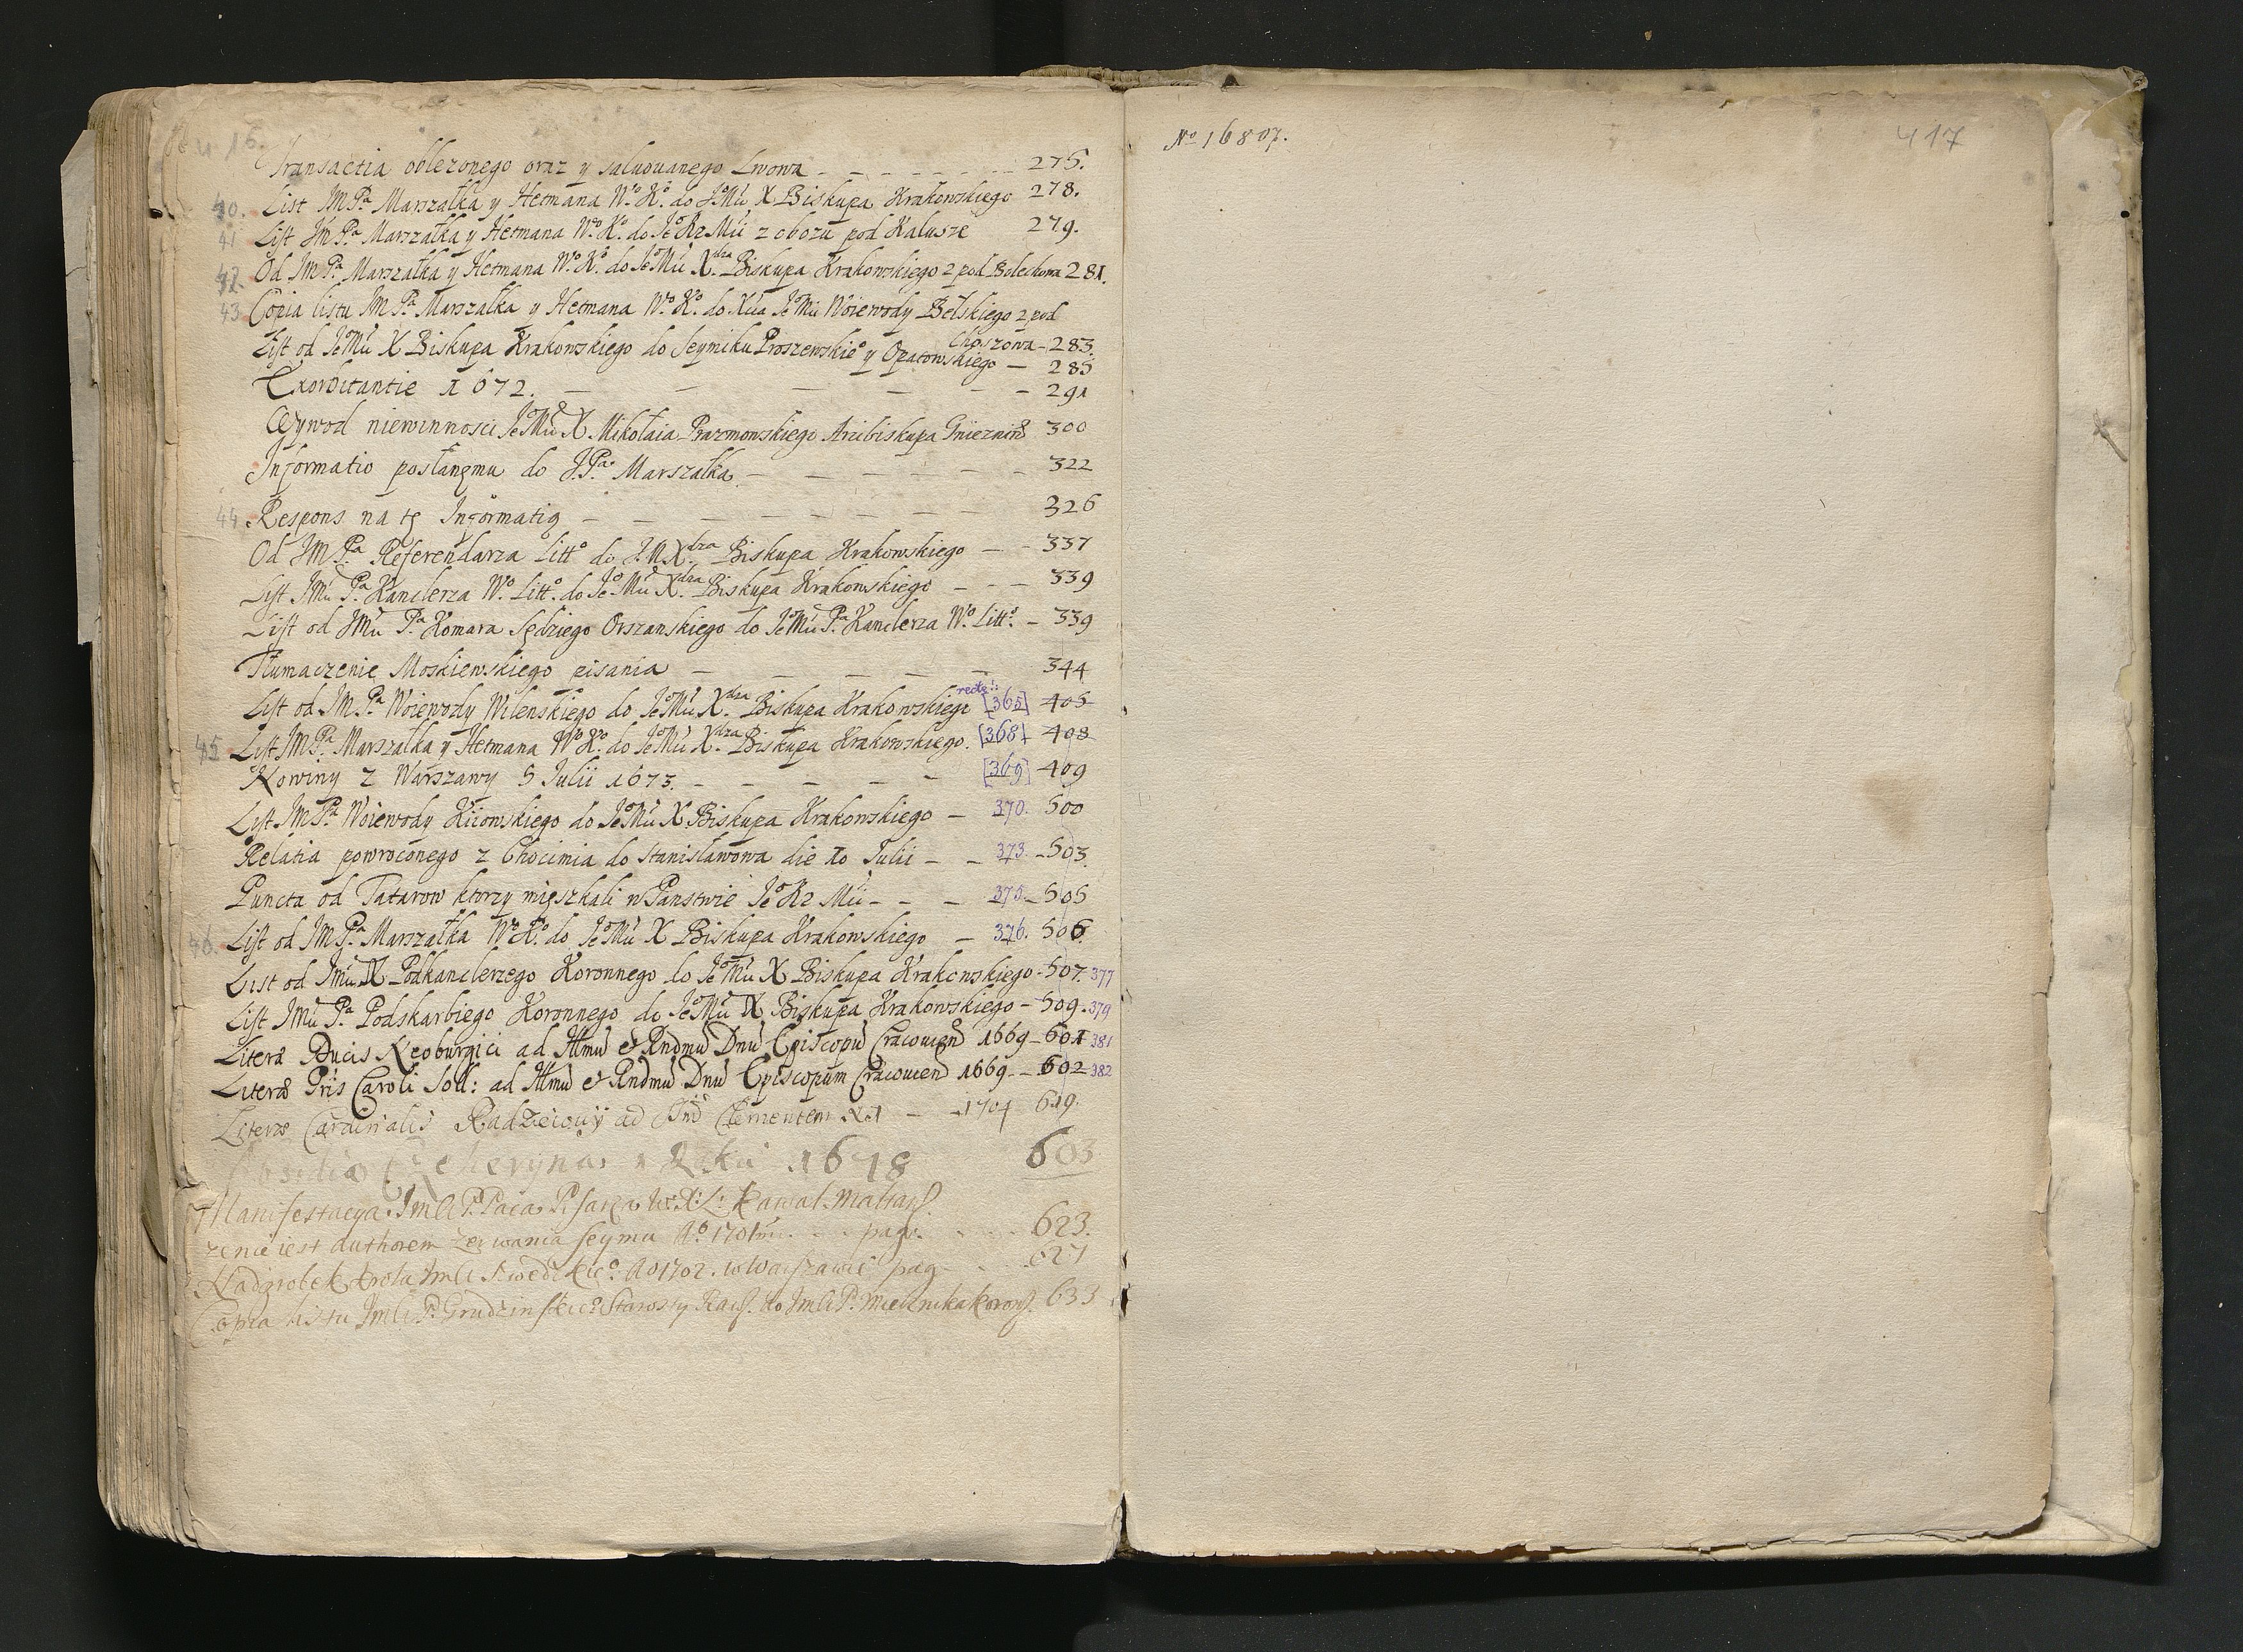 416.
Transactia oblezonego oraz y salwowanego Lwowa - - - - - - 275.
40. List JM Pa Marszałka y Hetmana Wo Ko do JeoMu X Biskupa Krakowskiego 278.
41 List JM Pa Marszałka y Hetmana Wo Ko do Jeo Kr Mu z obozu pod Kalusze 279.
42. Od JM Pa Marszałka y Hetmana Wo Ko do JeoMu Xdza Biskupa Krakowskiego z pod Bolechowa 281.
43 Copia listu JM Pa Marszałka y Hetmana Wo Ko do Xcia JeoMu Woiewody Bełskiego z pod
Choszowa - 283.
List od JeoMu X Biskupa Krakowskiego do Seymiku Proszewskieo y Opatowskiego - 285
Exorbitantie 1672. - - - - - 291
Wywod niewinnosci JeoMu X. Mikołaia Prazmowskiego Arcibiskupa Gniezniń 300
Informatio posłanemu do J.Pa Marszałka. - - - - - 322
44. Respons na tę Informatią - - - - - - - 326
Od JM Pa Referendarza Litto do J.M Xdza Biskupa Krakowskiego - - 337
List JMu Pa Kanclerza Wo Litto do JeoMu Xdza Biskupa Krakowskiego - - - 339
List od JMu Pa Komara Sędziego Orszanskiego do JeoMu Pa Kanclerza Wo Litto - 339
Tłumaczenie Moskiewskiego pisania - - - - - 344
recte:
List od JM Pa Woiewody Wilenskiego do JeoMu Xdza Biskupa Krakowskiego [365] 405
45 List JM Pa Marszałka y Hetmana Wo Ko do JeoMu Xdza Biskupa Krakowskiego. [368] 408
Nowiny z Warszawy 5 Julii 1673. - - - - - [369] 409
List JM Pa Woiewody Kiiowskiego do JeoMu X Biskupa Krakowskiego - 370. 500
Relatia powroconego z Chocimia do Stanisławowa die 10 Julii - - 373. - 503.
Puncta od Tatarow ktorzy mięszkali w Panstwie Jeo Kr Mu - - - 375. - 505
46. List od JM Pa Marszałka Wo Ko do JeoMu X Biskupa Krakowskiego - 376. 506.
List od JMu X Podkanclerzego Koronnego do JeoMu X Biskupa Krakowskiego - 507. 377
List JMu Pa Podskarbiego Koronnego do JeoMu X Biskupa Krakowskiego - 509. 379
Litera Ducis Neoburgici ad Illmu et Rndmu Dnu Episcopu Cracovien 1669 - 601 381
Litera Pris Caroli Soll: ad Illmu et Rndmu Dnu Episcopum Cracovien 1669 - - 602 382
Litera Cardinalis Radzieiowÿ ad Clementem XI - - 1704 619.
Obsidia Czeheryna 1678 603
Manifestacya Jmci P. Paca Pisarza W.X.L. Kawal. Maltań.
ze nie iest authorem zerwania Seymu Ao 1701mo. - - pag. - - - - 623.
Nadgrobek krola Jmci Szwedzkieo Ao 1702. w Warszawie pag - - - 627
Copia listu Jmci P. Grudzinskieo Starosty Raws. do Jmci P. Miecznika koron. 633
No 16807.
417